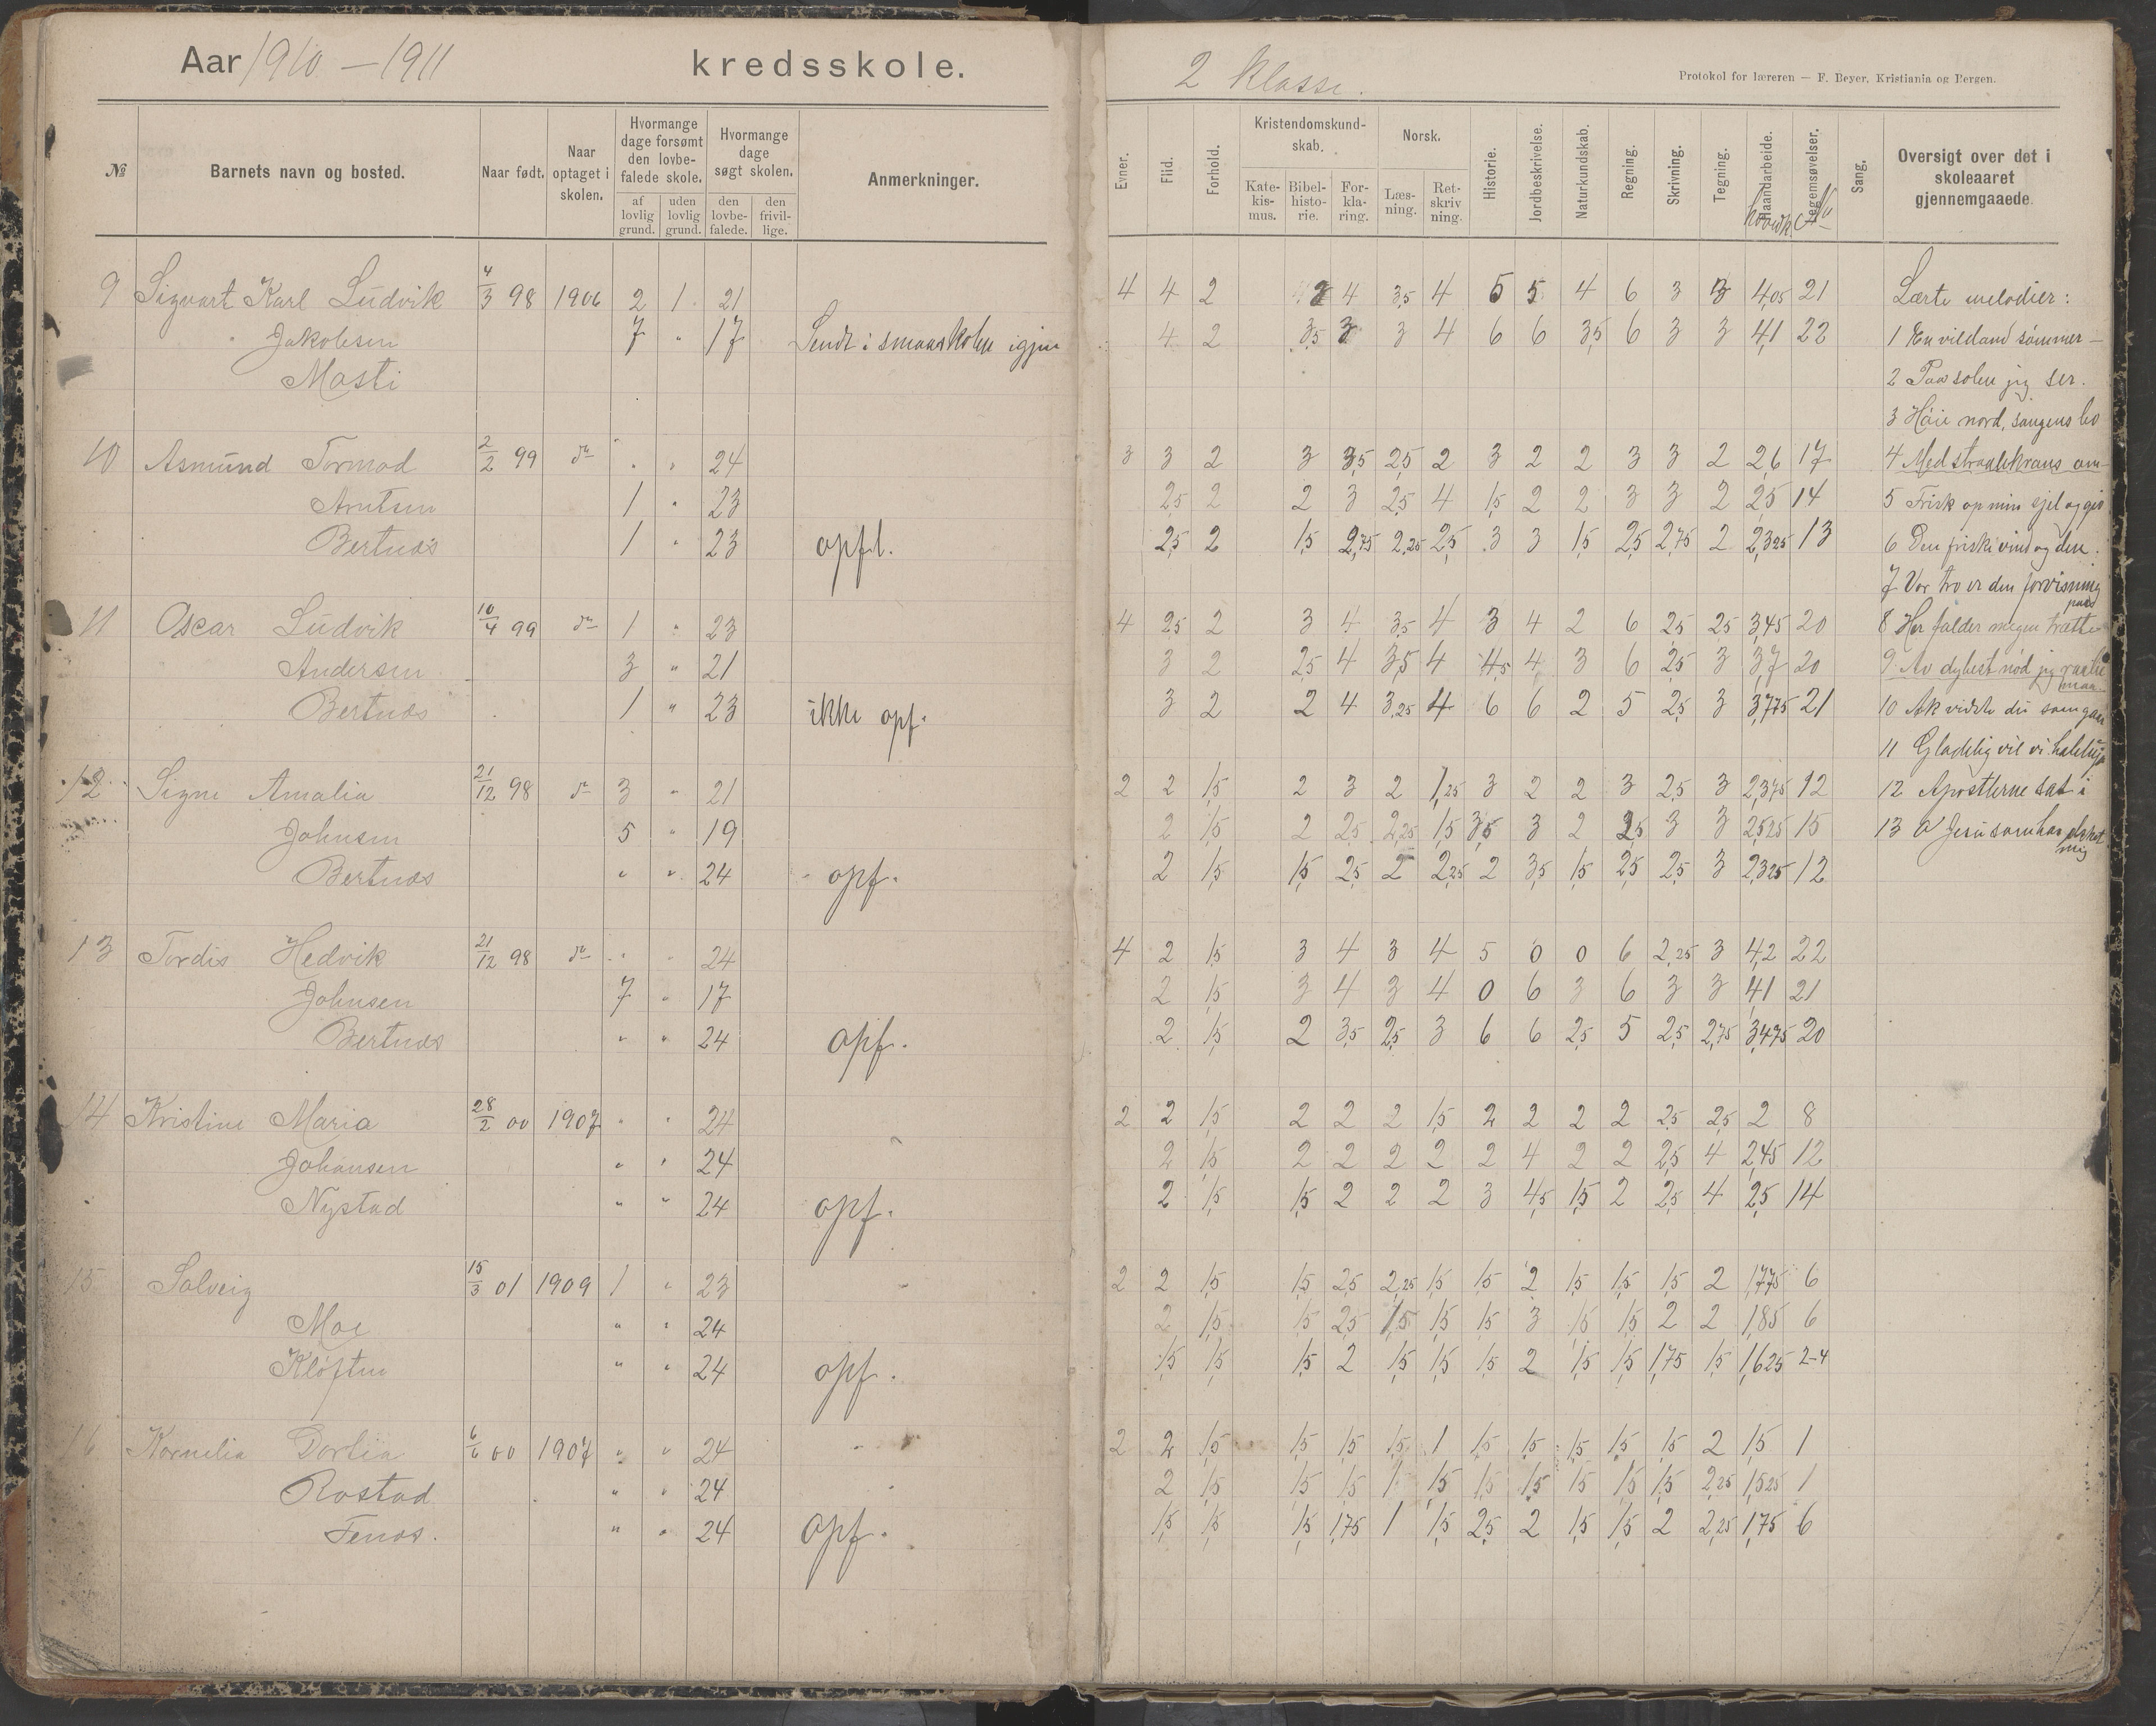 Aar 1910 – 1911 kredsskole.
2 Klasse.
Protokol for læreren — F. Beyer, Kristiania og Bergen.
№ Barnets navn og bosted. Naar født. Naar optaget i skolen. Hvormange dage forsømt den lovbefalede skole. af lovlig grund. uden lovlig grund. Hvormange dage søgt skolen. den lovbefalede. den frivillige. Anmerkninger.
Evner. Flid. Forhold. Kristendomskundskab. Katekismus. Bibelhistorie. Forklaring. Norsk. Læsning. Retskrivning. Historie. Jordbeskrivelse. Naturkundskab. Regning. Skrivning. Tegning. Haandarbeide. Legemsøvelser. Sang. Oversigt over det i skoleaaret gjennemgaaede.
9 Sigvart Karl Ludvik 4/3 98 1906 2 1 21
Jakobsen 7 " 17 Sendt i smaaskolen igjen
Masti
10 Asmund Tormod 2/2 99 do " " 24
Arntsen 1 " 23
Bertnæs 1 " 23 opfl.
11 Oscar Ludvik 10/4 99 do 1 " 23
Andersen 3 " 21
Bertnæs 1 " 23 ikke opf.
12 Signe Amalia 21/12 98 do 3 " 21
Johnsen 5 " 19
Bertnæs " " 24 opf.
13 Tordis Hedvik 21/12 98 do " " 24
Johnsen 7 " 17
Bertnæs " " 24 opf.
14 Kristine Maria 28/2 00 1907 " " 24
Johansen " " 24
Nystad " " 24 opf.
15 Solveig 15/3 01 1909 1 " 23
Moe " " 24
Kløften " " 24 opf.
16 Kornelia Dortia 6/6 00 1907 " " 24
Rostad " " 24
Tenes. " " 24 opf.
4 4 2 4 3,5 4 5 5 4 6 3 3 4,05 21
4 2 3,5 3 3 4 6 6 3,5 6 3 3 4,1 22
3 3 2 3 3,5 2,5 2 3 2 2 3 3 2 2,6 17
2,5 2 2 3 2,5 4 1,5 2 2 3 3 2 2,5 14
2,5 2 1,5 2,75 2,25 2,5 3 3 1,5 2,5 2,75 2 2,325 13
4 2,5 2 3 4 3,5 4 3 4 2 6 2,5 2,5 3,45 20
3 2 2,5 4 3,5 4 4,5 4 3 6 2,5 3 3,7 20
3 2 2 4 3,25 4 6 6 2 5 2,5 3 3,775 21
2 2 1,5 2 3 2 1,25 3 2 2 3 2,5 3 2,375 12
2 1,5 2 2,5 2,25 1,5 3,5 3 2 2,5 3 3 2,525 15
2 1,5 1,5 2,5 2 2,25 2 3,5 1,5 2,5 2,5 3 2,325 12
4 2 1,5 3 4 3 4 5 0 0 6 2,25 3 4,2 22
2 1,5 3 4 3 4 0 6 3 6 3 3 4,1 21
2 1,5 2 3,5 2,5 3 6 6 2,5 5 2,5 2,75 3,475 20
2 2 1,5 2 2 2 1,5 2 2 2 2 2,5 2,5 2 8
2 1,5 2 2 2 2 2 4 2 2 2,5 4 2,45 12
2 1,5 1,5 2 2 2 3 4,5 1,5 2 2,5 4 2,5 14
2 2 1,5 1,5 2,5 2,25 1,5 1,5 2 1,5 1,5 1,5 2 1,775 6
2 1,5 1,5 2,5 1,5 1,5 1,5 3 1,5 1,5 2 2 1,85 6
1,5 1,5 1,5 2 1,5 1,5 1,5 2 1,5 1,5 1,75 1,5 1,625 2-4
2 2 1,5 1,5 1,5 1,5 1 1,5 1,5 1,5 1,5 1,5 2 1,5 1
2 1,5 1,5 1,5 1 1,5 1,5 1,5 1,5 1,5 1,5 2,25 1,525 1
1,5 1,5 1,5 1,75 1 1,5 2,5 2 1,5 1,5 2 2,25 1,75 6
Lærte melodier:
1 En vildand svømmer –
2 Paa solen jeg ser.
3 Høie nord, sangens bo
4 Med straalekrans om–
5 Frisk op min sjel og giv
6 Den friske vind og den
7 Vor tro er den forvisning paa
8 Her falder megen trætte
9 Av dybest nød jeg raabe maa
10 Ak vidste du som gaar
11 Gladelig vil vi halleluja
12 Apostlerne sat i
13 O Jesu som har elsket mig